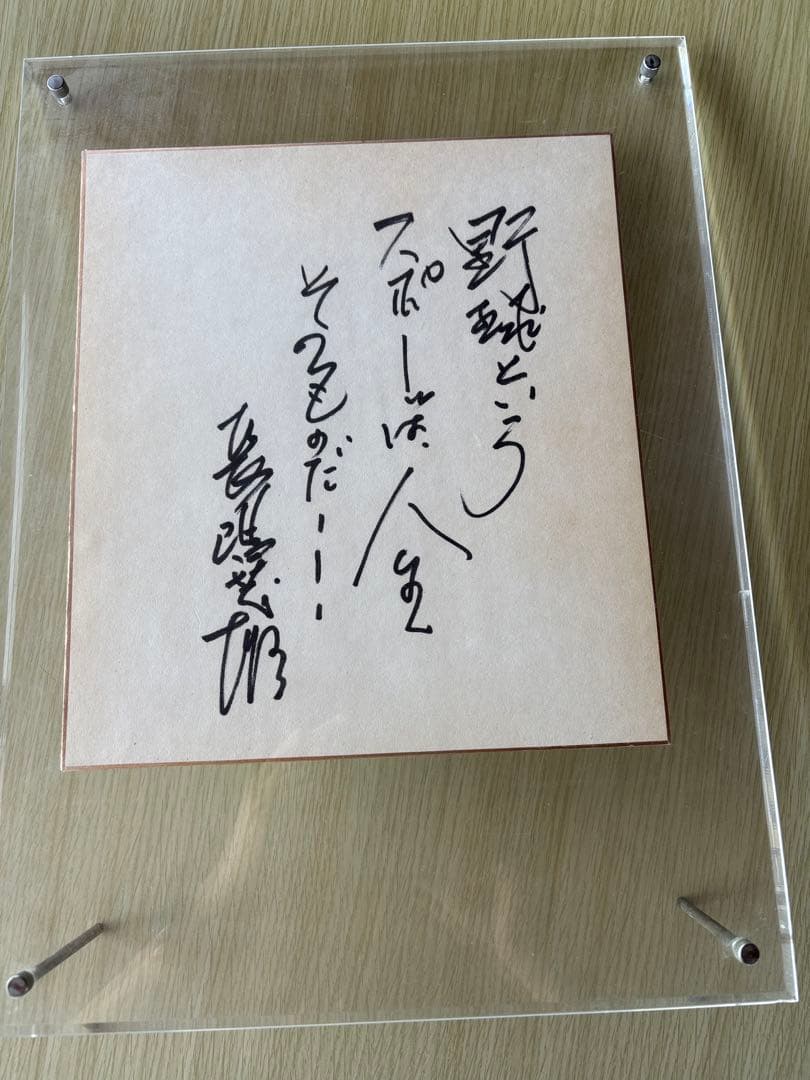 野球という
スポーツは人生
そのものだーーー
長嶋茂雄